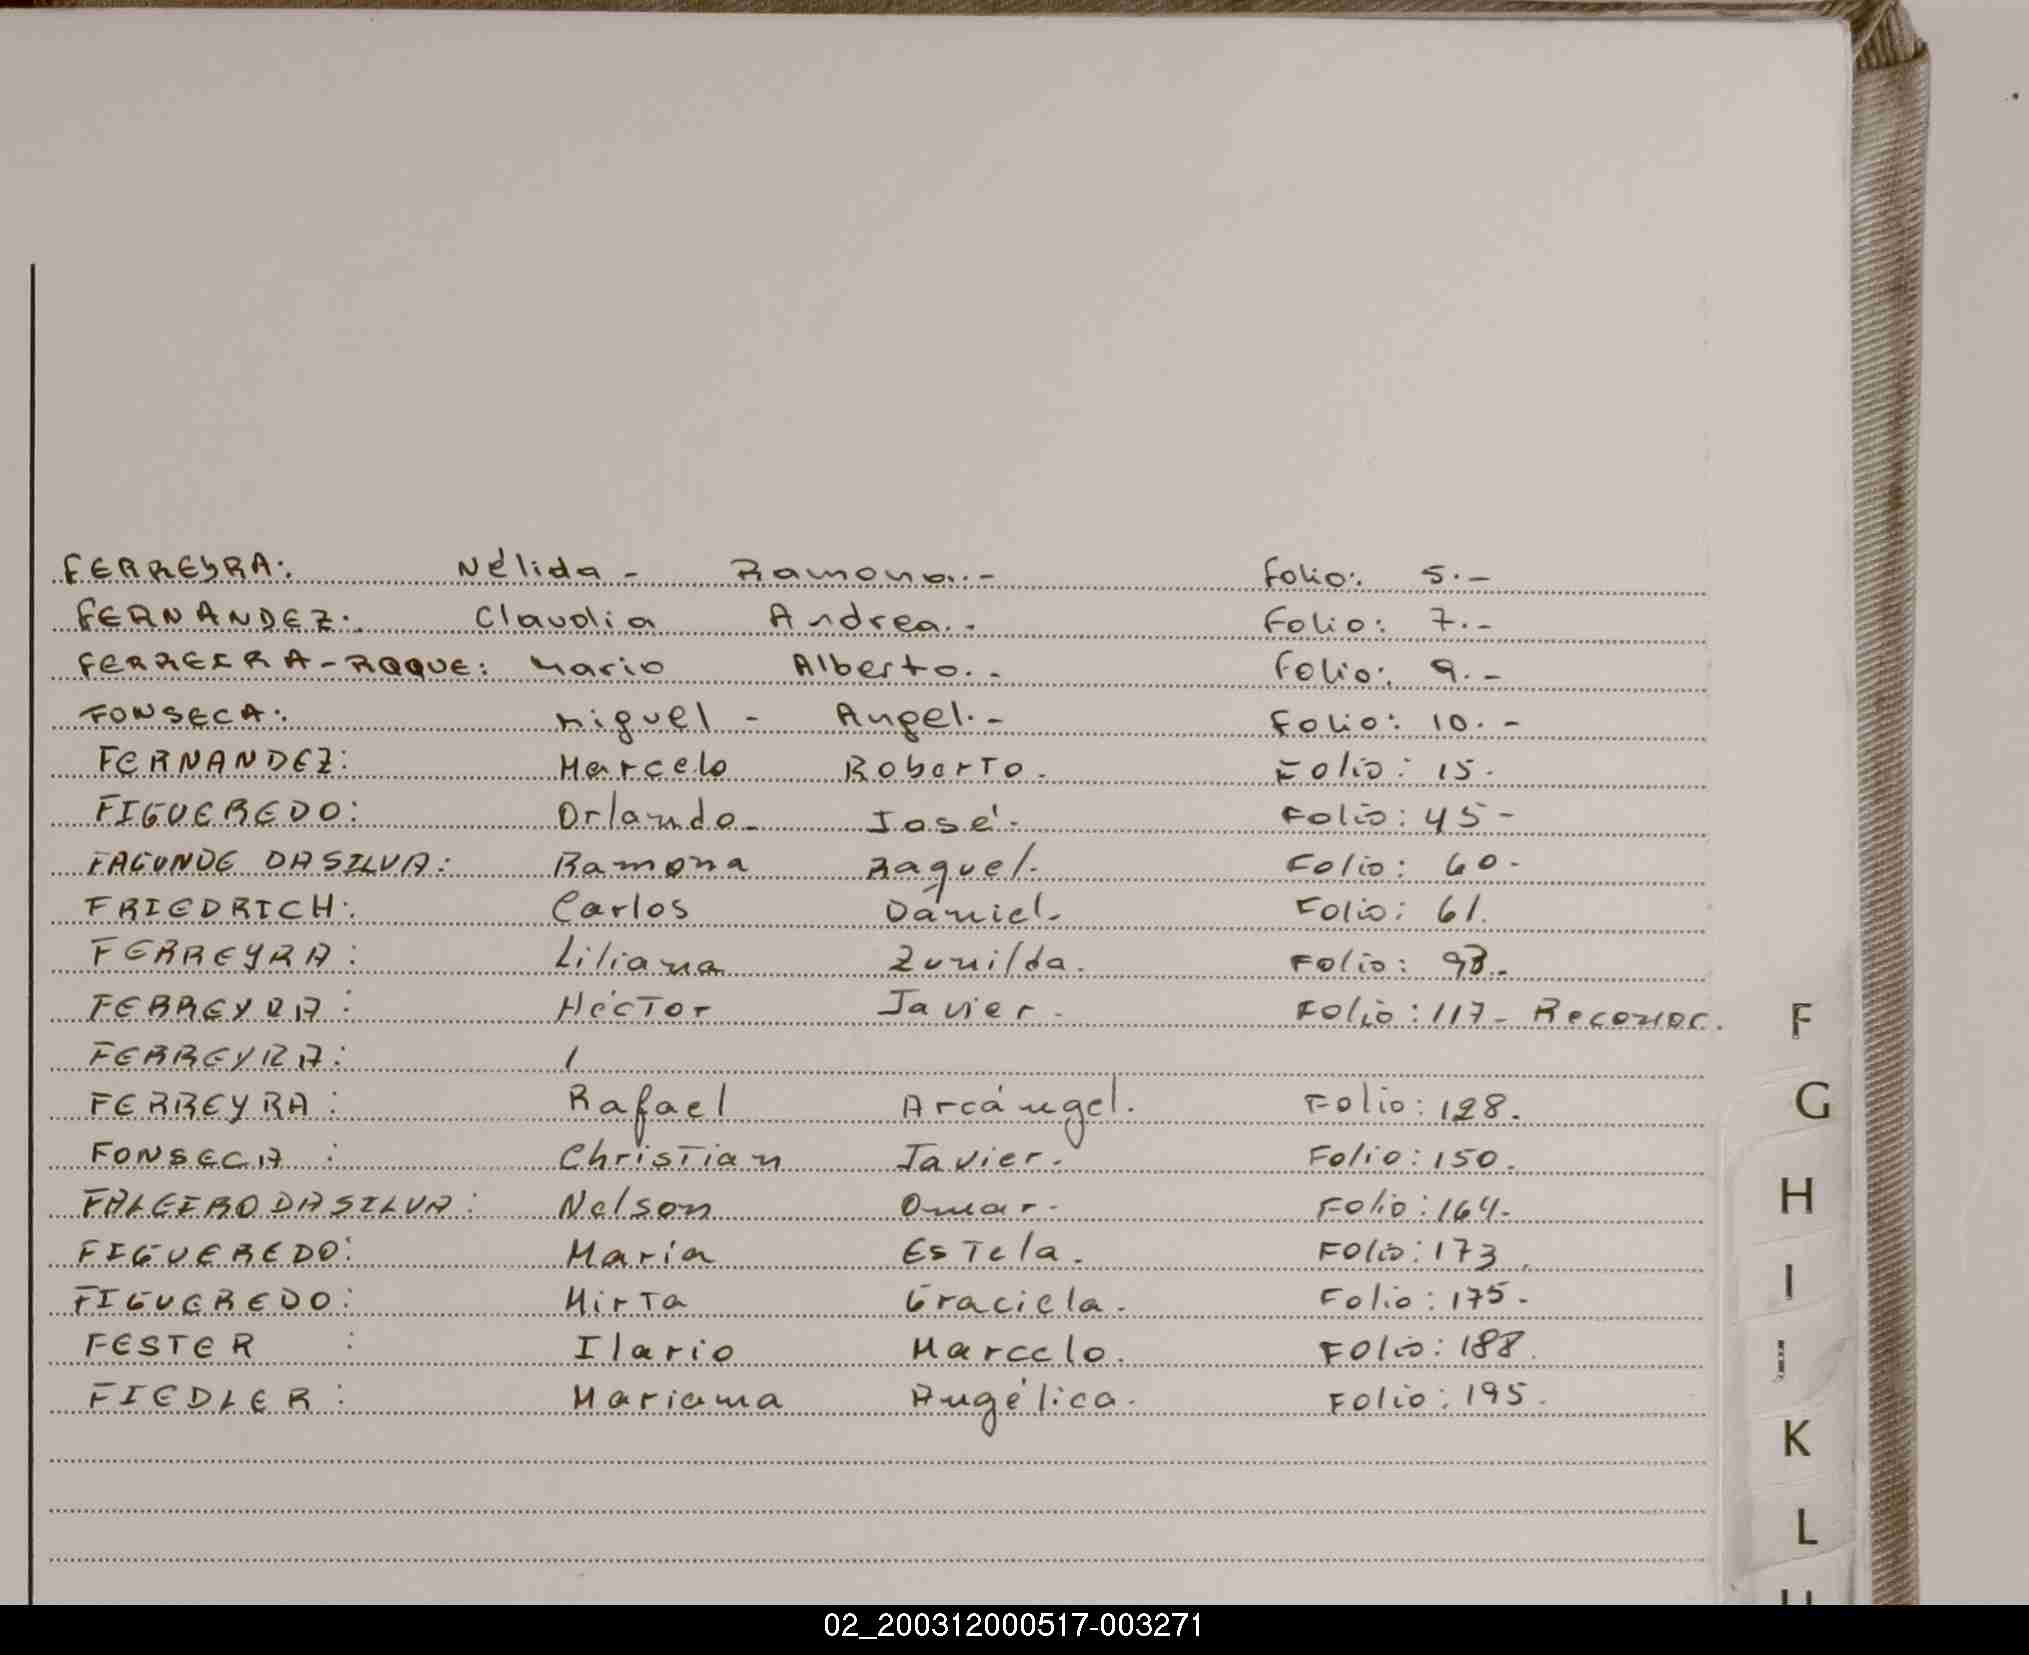 FERREYRA: Nélida - Ramona.- Folio: 5.-
FERNANDEZ: Claudia Andrea.- Folio: 7.-
FERREIRA-ROQUE: Mario Alberto.- Folio: 9.-
FONSECA: Miguel - Angel.- Folio: 10.-
FERNANDEZ: Marcelo Roberto. Folio: 15.
FIGUEREDO: Orlando. José. Folio: 45-
FAGUNDE DA SILVA: Ramona Raquel. Folio: 60.
FRIEDRICH: Carlos Daniel. Folio: 61.
FERREYRA: Liliana Zunilda. Folio: 93.
FERREYRA: Héctor Javier. Folio: 117- Reconoc.
FERREYRA: /
FERREYRA: Rafael Arcángel. Folio: 128.
FONSECA : Christian Javier. Folio: 150.
FALEIRO DA SILVA: Nelson Omar. Folio: 164.
FIGUEREDO: María Estela. Folio: 173.
FIGUEREDO: Mirta Graciela. Folio: 175.
FESTER : Ilario Marcelo. Folio: 188.
FIEDLER : Mariana Angélica. Folio: 195.
F
G
H
I
J
K
L
02_200312000517-003271